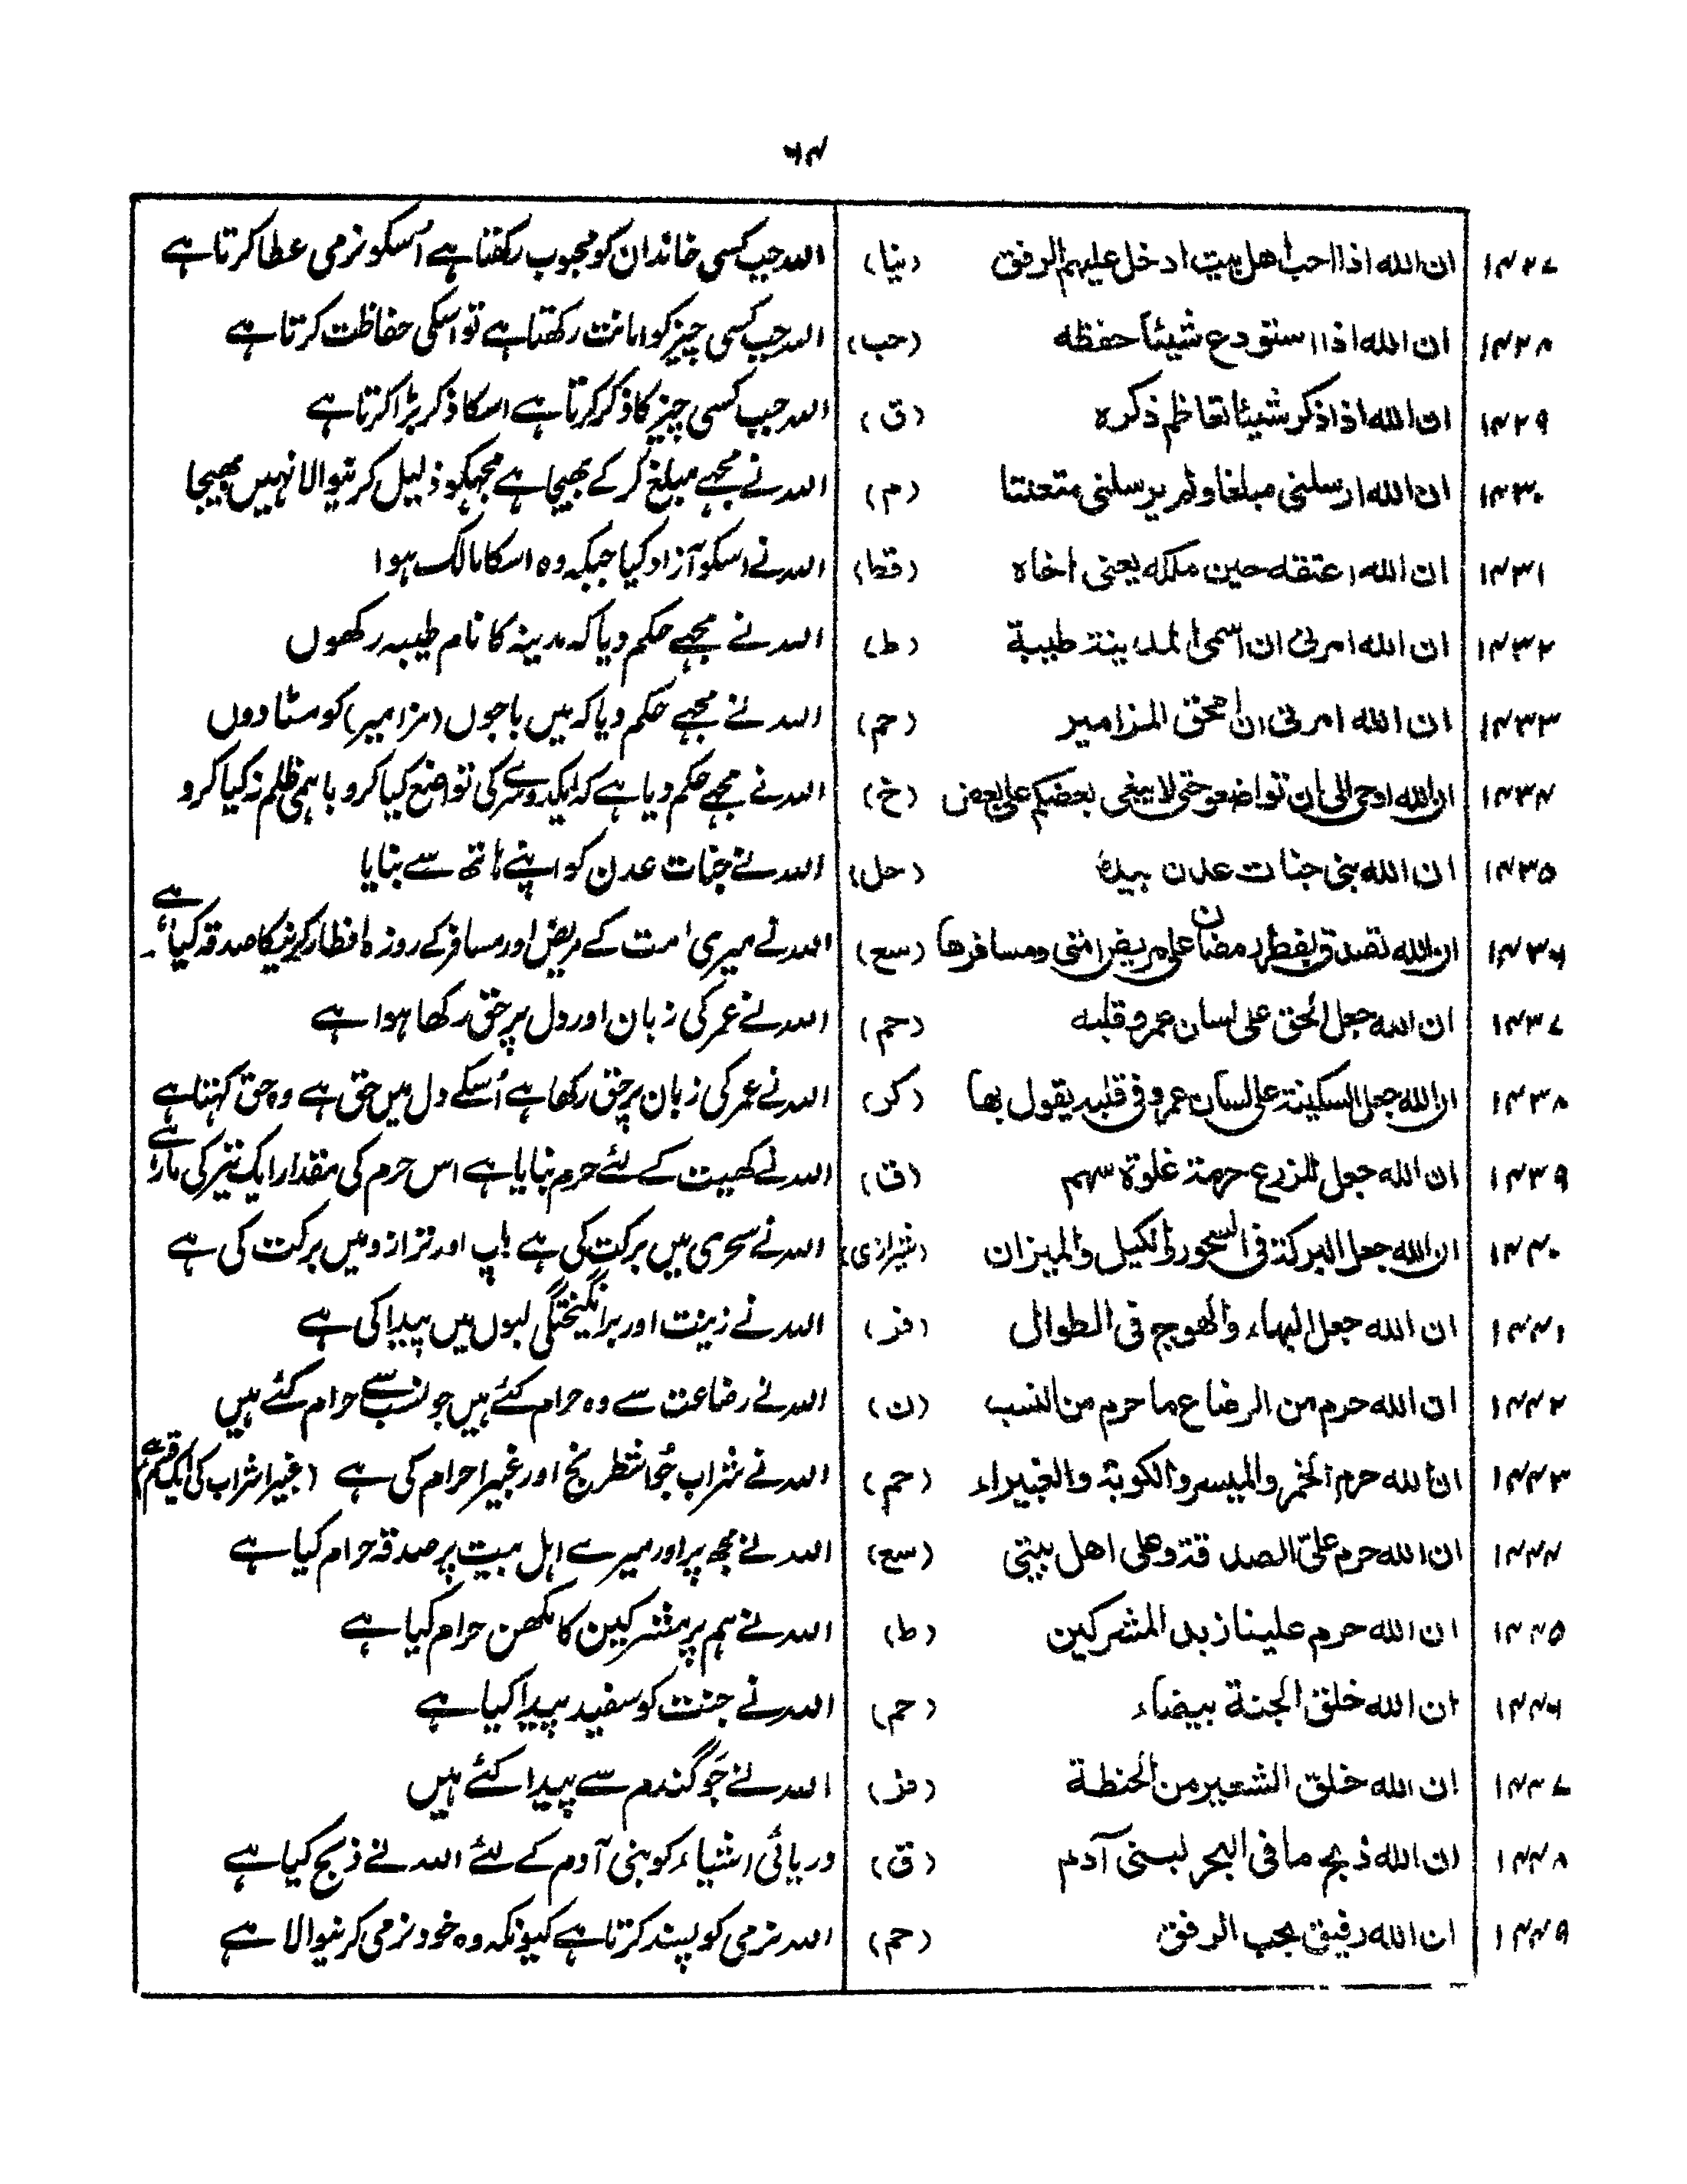 ۶۴
۱۴۲۷ ان الله اذا احب اهل بيت ادخل عليهم الرفق (نیا) اللہ جب کسی خاندان کو محبوب رکھتا ہے اُسکو نرمی عطا کرتا ہے
۱۴۲۸ ان الله اذا استودع شيئا حفظه (حب) اللہ جب کسی چیز کو امانت رکھتا ہے تو اسکی حفاظت کرتا ہے
۱۴۲۹ ان الله اذا ذكر شيئا تعاظم ذكره (ق) اللہ جب کسی چیز کا ذکر کرتا ہے اسکا ذکر بڑا کرتا ہے
۱۴۳۰ ان الله ارسلنى مبلغا ولم يرسلنى متعنتا (م) اللہ نے مجھے مبلغ کر کے بھیجا ہے مجھکو ذلیل کرنیوالا نہیں بھیجا
۱۴۳۱ ان الله اعتقه حين ملكه يعنى اخاه (قط) اللہ نے اسکو آزاد کیا جبکہ وہ اسکا مالک ہوا
۱۴۳۲ ان الله امرنى ان اسمى المدينة طيبة (ط) اللہ نے مجھے حکم دیا کہ مدینہ کا نام طیبہ رکھوں
۱۴۳۳ ان الله امرنى ان امحق المزامير (حم) اللہ نے مجھے حکم دیا کہ میں باجوں (مزامیر) کو مٹا دوں
۱۴۳۴ ان الله اوحى الى ان تواضعوا حتى لا يبغى بعضكم على بعض (خ) اللہ نے مجھے حکم دیا ہے کہ ایکدوسرے کی تواضع کیا کرو باہمی ظلم نہ کیا کرو
۱۴۳۵ ان الله بنى جنات عدن بيده (حل) اللہ نے جنات عدن کو اپنے ہاتھ سے بنایا
۱۴۳۶ ان الله تصدق بفطر رمضان على مريض امتى ومسافرها (سع) اللہ نے میری امت کے مریض اور مسافر کے روزہ افطار کرنیکا صدقہ کیا ہے
۱۴۳۷ ان الله جعل الحق على لسان عمر وقلبه (حم) اللہ نے عمر کی زبان اور دل پر حق رکھا ہوا ہے
۱۴۳۸ ان الله جعل السكينة على لسان عمر وفى قلبه يقول بها (کر) اللہ نے عمر کی زبان پر حق رکھا ہے اُسکے دل میں حق ہے وہ حق کہتا ہے
۱۴۳۹ ان الله جعل للزرع حرمة غلوة سهم (ق) اللہ نے کھیت کے لئے حرم بنایا ہے اس حرم کی مقدار ایک تیر کی مار ہے
۱۴۴۰ ان الله جعل البركة فى السحور والكيل والميزان (شیرازی) اللہ نے سحری میں برکت کی ہے ماپ اور ترازو میں برکت کی ہے
۱۴۴۱ ان الله جعل البهاء والهوج فى الطوال (فر) اللہ نے زینت اور برانگیختگی لبوں میں پیدا کی ہے
۱۴۴۲ ان الله حرم من الرضاع ما حرم من النسب (ت) اللہ نے رضاعت سے وہ حرام کئے ہیں جو نسب سے حرام کئے ہیں
۱۴۴۳ ان الله حرم الخمر والميسر والكوبة والغبيراء (حم) اللہ نے شراب جُوا شطرنج اور غبیرا حرام کی ہے (غبیرا شراب کی ایک قسم ہے)
۱۴۴۴ ان الله حرم علىّ الصدقة وعلى اهل بيتى (سع) اللہ نے مجھ پر اور میرے اہل بیت پر صدقہ حرام کیا ہے
۱۴۴۵ ان الله حرم علينا زبد المشركين (ط) اللہ نے ہم پر مشرکین کا مکھن حرام کیا ہے
۱۴۴۶ ان الله خلق الجنة بيضاء (حم) اللہ نے جنت کو سفید پیدا کیا ہے
۱۴۴۷ ان الله خلق الشعير من الحنطة (فر) اللہ نے جَو گندم سے پیدا کئے ہیں
۱۴۴۸ ان الله ذبح ما فى البحر لبنى آدم (ق) دریائی اشیاء کو بنی آدم کے لئے اللہ نے ذبح کیا ہے
۱۴۴۹ ان الله رفيق يحب الرفق (حم) اللہ نرمی کو پسند کرتا ہے کیونکہ وہ خود نرمی کرنیوالا ہے